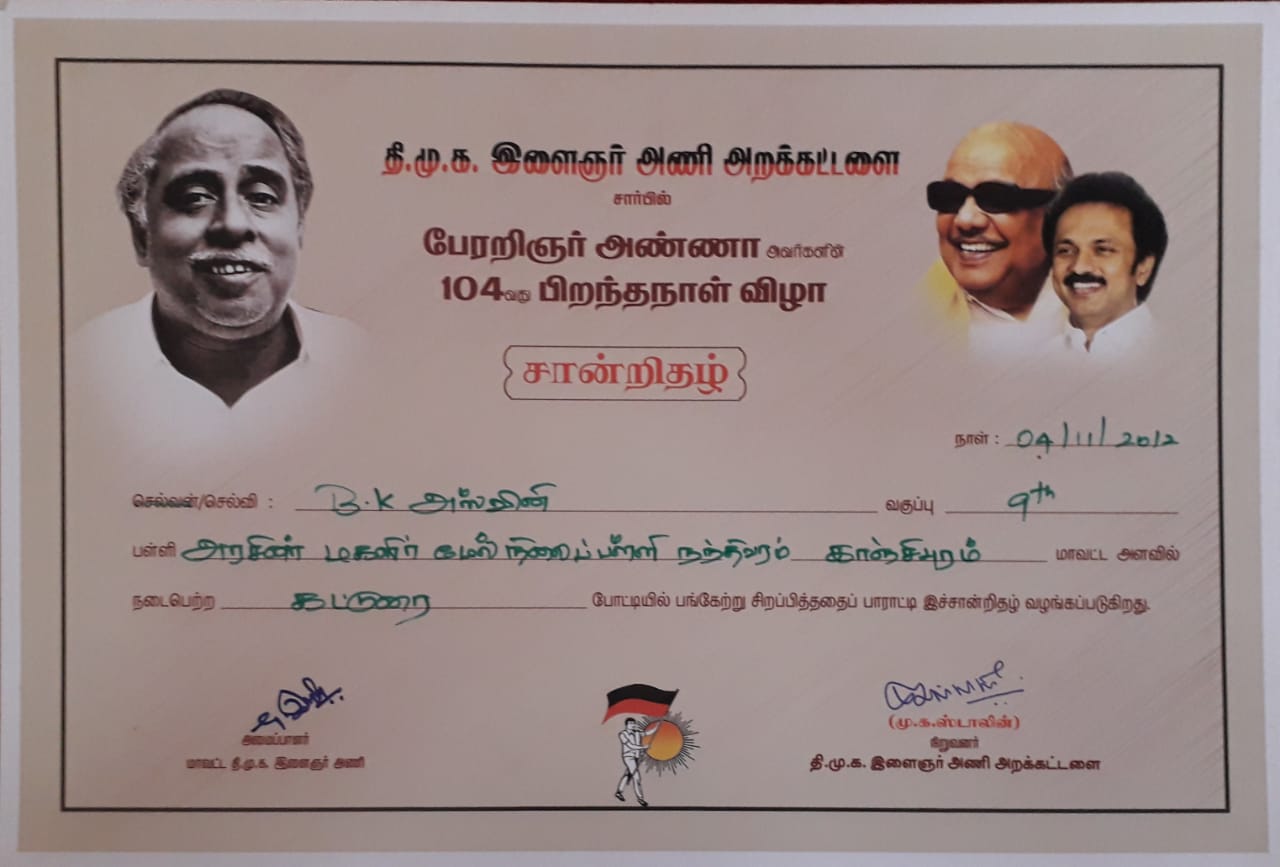 தி.மு.க. இளைஞர் அணி அறக்கட்டளை
சார்பில்
பேரறிஞர் அண்ணா அவர்களின்
104வது பிறந்தநாள் விழா
சான்றிதழ்
நாள் : 04/11/2012
செல்வன்/செல்வி : B.K அஸ்வினி வகுப்பு 9th
பள்ளி அரசினர் மகளிர் மேல்நிலைப்பள்ளி நந்திவரம் காஞ்சிபுரம் மாவட்ட அளவில்
நடைபெற்ற கட்டுரை போட்டியில் பங்கேற்று சிறப்பித்ததைப் பாராட்டி இச்சான்றிதழ் வழங்கப்படுகிறது.
அமைப்பாளர்
மாவட்ட தி.மு.க. இளைஞர் அணி
(மு.க.ஸ்டாலின்)
நிறுவனர்
தி.மு.க. இளைஞர் அணி அறக்கட்டளை